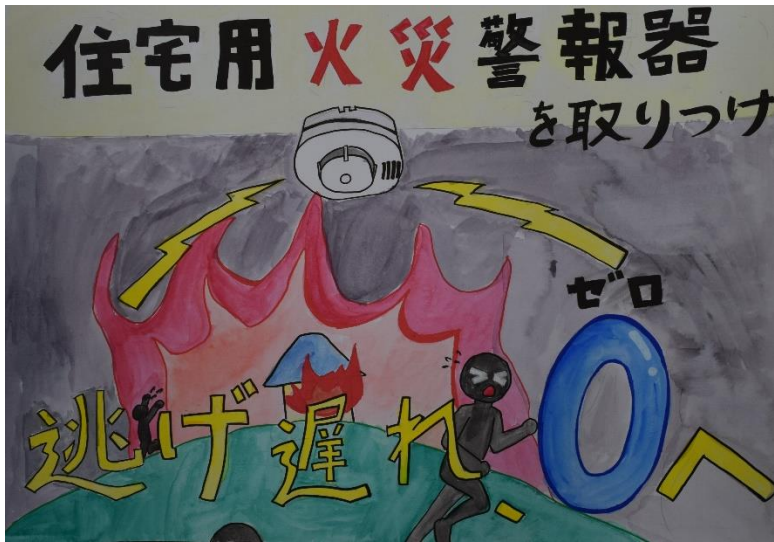 住宅用火災警報器
を取りつけ
ゼロ
逃げ遅れ0へ